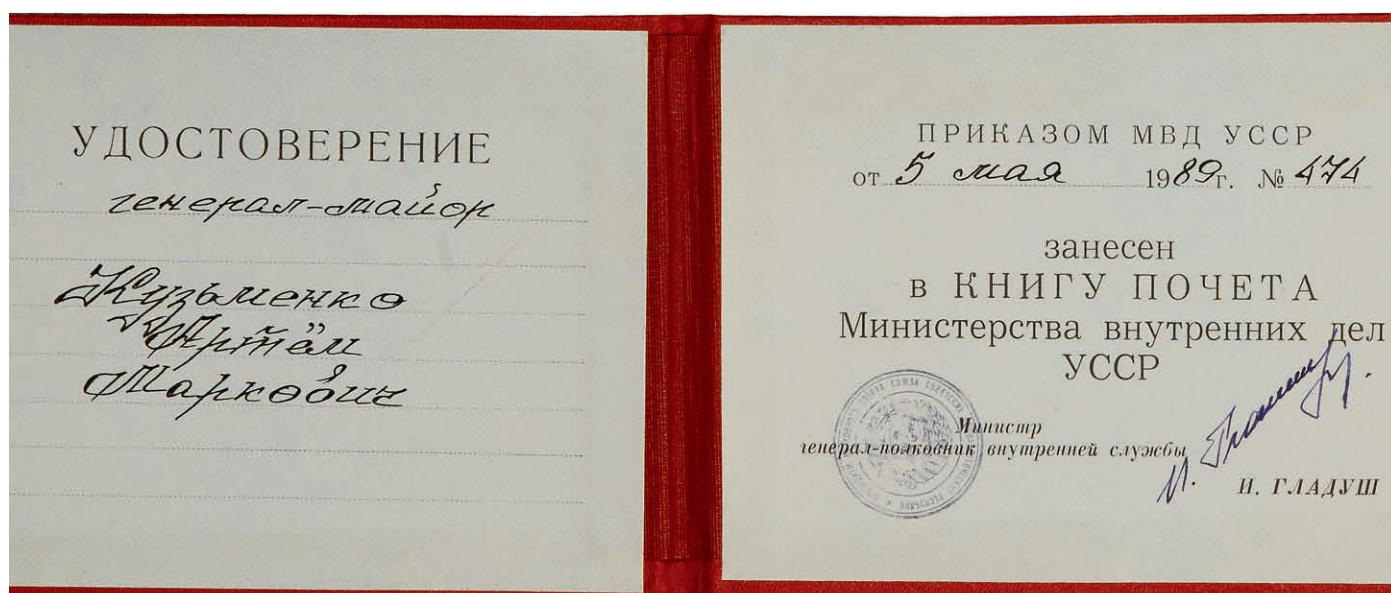 УДОСТОВЕРЕНИЕ
генерал-майор
Кузьменко
Артём
Маркович
ПРИКАЗОМ МВД УССР
от 5 мая 1989г. № 474
занесен
в КНИГУ ПОЧЕТА
Министерства внутренних дел
УССР
Министр
генерал-полковник внутренней службы
И. ГЛАДУШ